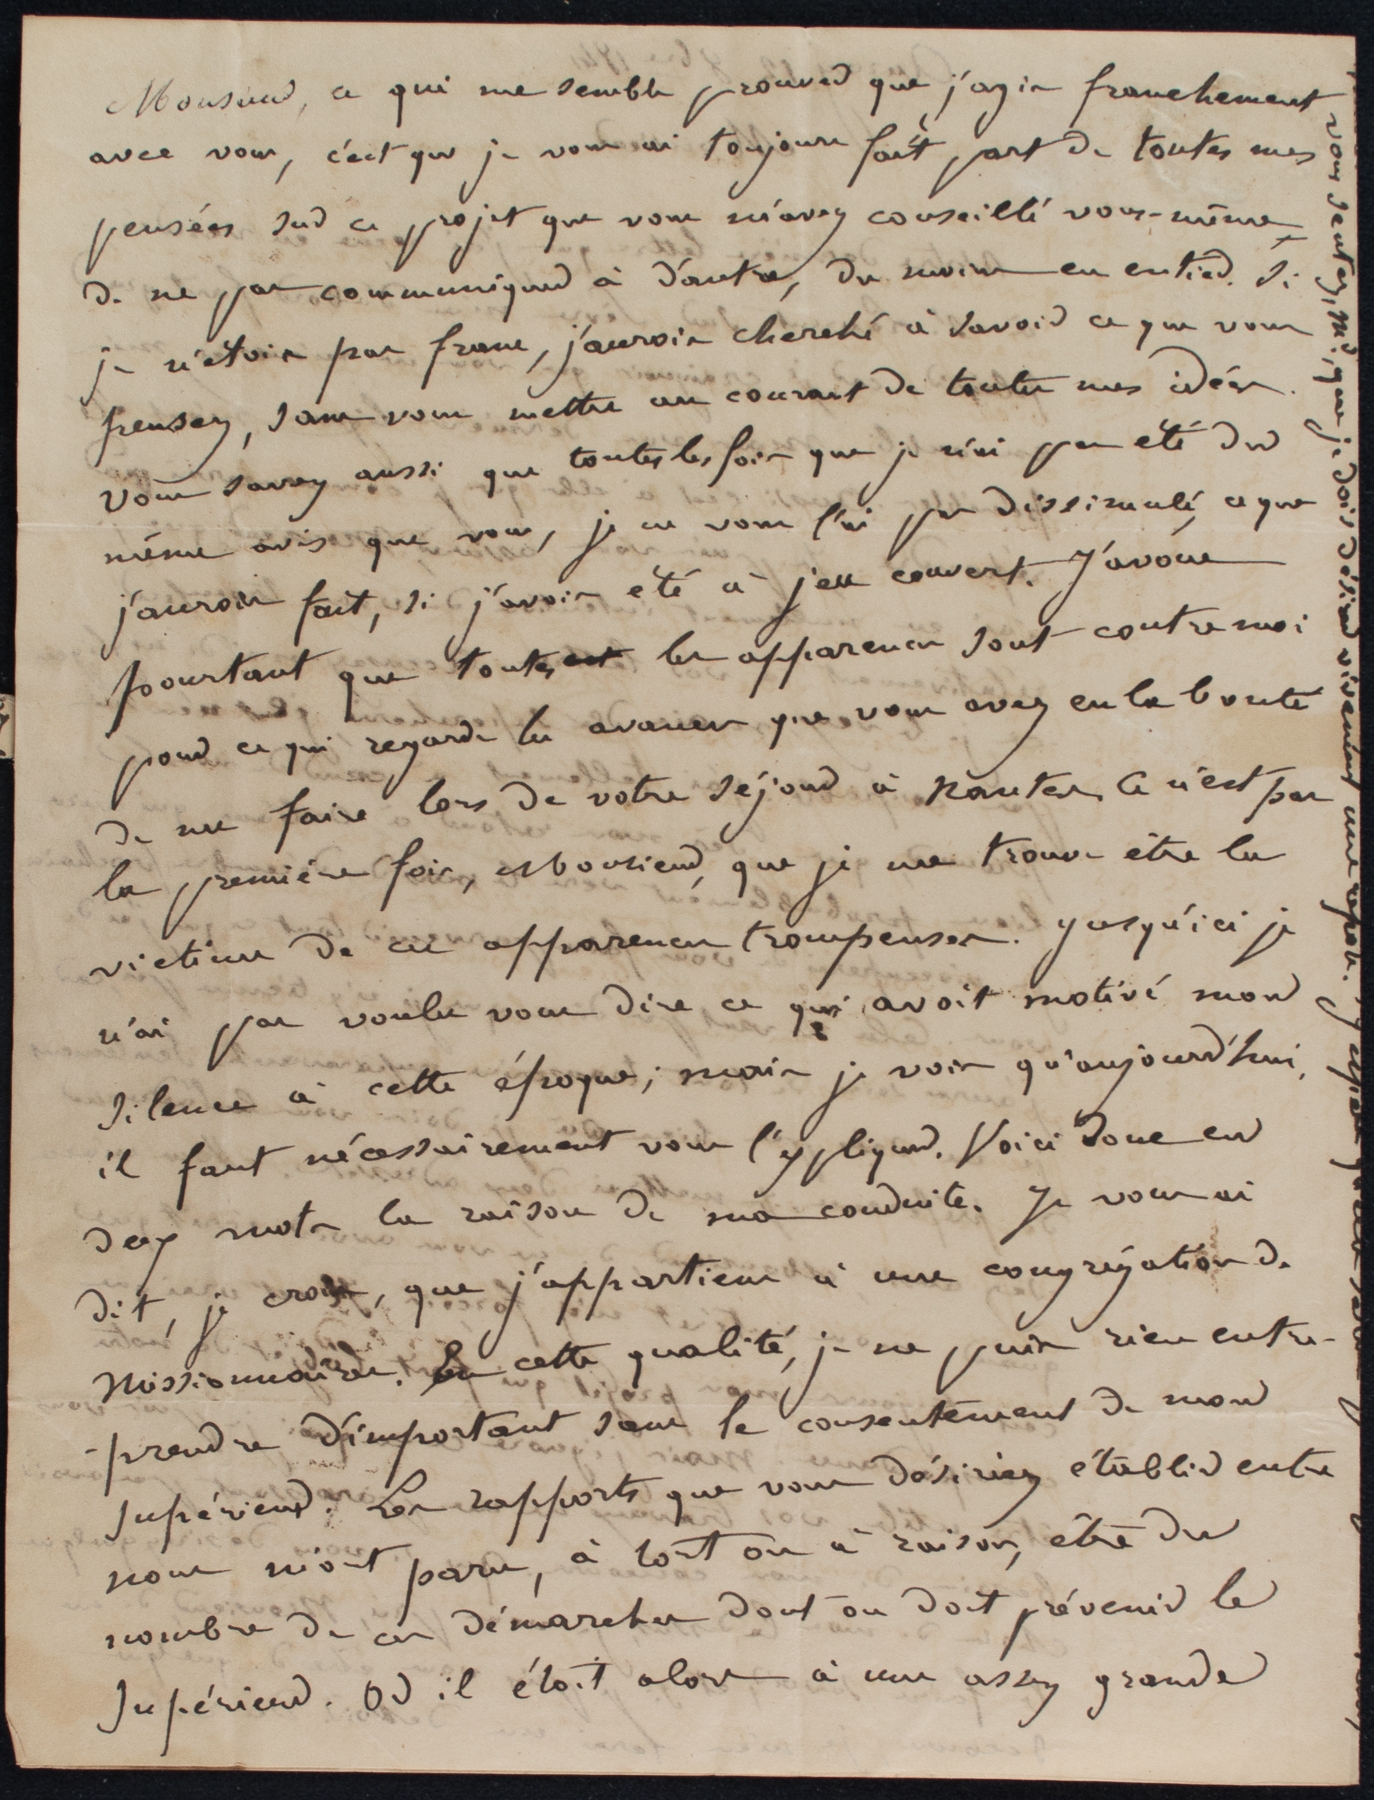 Monsieur, ce qui me semble prouver que j'agis franchement
avec vous, c'est que je vous ai toujours fait part de toutes mes
pensées sur ce projet que vous m'avez conseillé vous-même
de ne pas communiquer à d'autres, du moins en entier. Si
je n'étois pas franc, j'aurois cherché à savoir ce que vous
pensez, sans vous mettre au courant de toutes mes idées.
Vous savez aussi que toutes les fois que je n'ai pas été du
même avis que vous, je ne vous l'ai pas dissimulé, ce que
j'aurois fait, si j'avois été à jeu couvert. J'avoue
pourtant que toutes les apparences sont contre moi
pour ce qui regarde les avances que vous avez eu la bonté
de me faire lors de votre séjour à Nantes. Ce n'est pas
la première fois, Monsieur, que je me trouve être la
victime de ces apparences trompeuses. Jusqu'ici je
n'ai pas voulu vous dire ce qui avoit motivé mon
silence à cette époque; mais je vois qu'aujourd'hui,
il faut nécessairement vous l'expliquer. Voici donc en
deux mots la raison de ma conduite. Je vous ai
dit, je crois, que j'appartiens à une congrégation de
Missionnaires. En cette qualité, je ne puis rien entre-
-prendre d'important sans le consentement de mon
Supérieur. Les rapports que vous désiriez établir entre
nous m'ont paru, à tort ou à raison, être du
nombre de ces démarches dont on doit prévenir le
Supérieur. Or il étoit alors à une assez grande
vous sentez, Mr, que je dois désirer vivement une réponse.